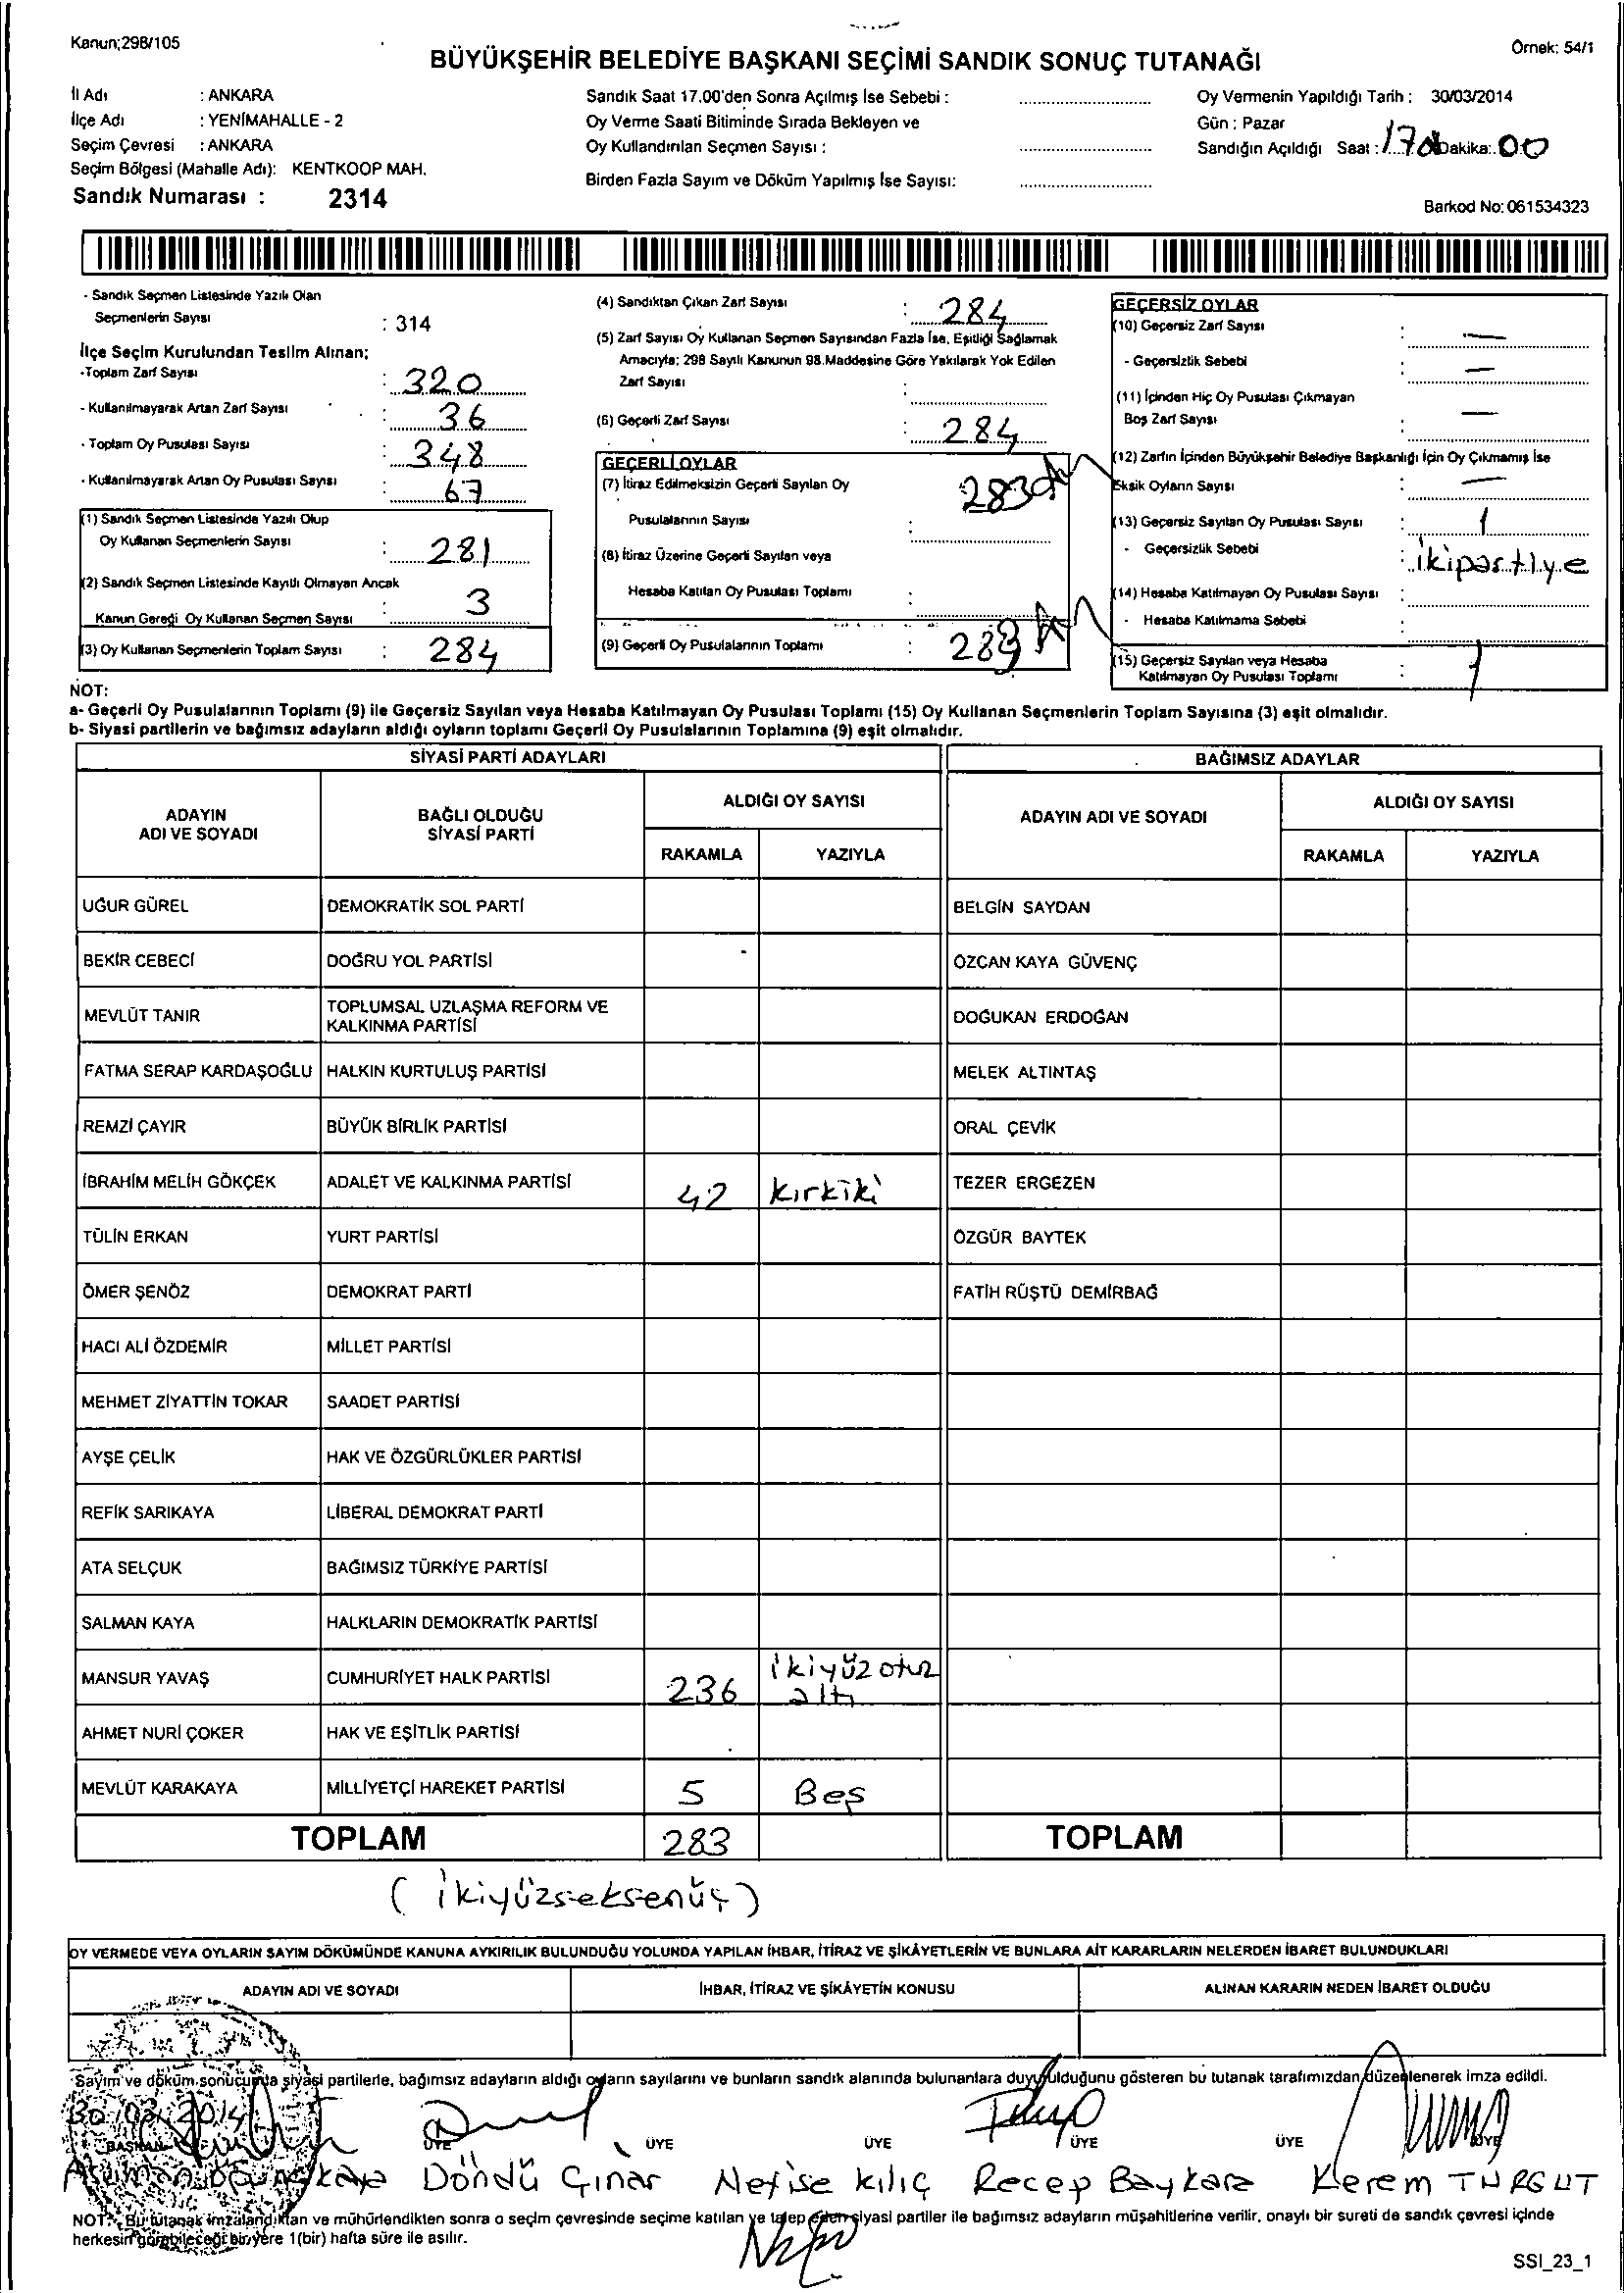 Kanun;298/105
Örnek: 54/1
BÜYÜKŞEHİR BELEDİYE BAŞKANI SEÇİMİ SANDIK SONUÇ TUTANAĞI
İl Adı : ANKARA
İlçe Adı : YENİMAHALLE - 2
Seçim Çevresi : ANKARA
Seçim Bölgesi (Mahalle Adı): KENTKOOP MAH.
Sandık Numarası : 2314
Sandık Saat 17.00'den Sonra Açılmış İse Sebebi :
Oy Verme Saati Bitiminde Sırada Bekleyen ve
Oy Kullandırılan Seçmen Sayısı :
Birden Fazla Sayım ve Döküm Yapılmış İse Sayısı:
Oy Vermenin Yapıldığı Tarih : 30/03/2014
Gün : Pazar
Sandığın Açıldığı Saat : 17 Dakika: 00
Barkod No: 061534323
- Sandık Seçmen Listesinde Yazılı Olan
Seçmenlerin Sayısı : 314
İlçe Seçim Kurulundan Teslim Alınan;
-Toplam Zarf Sayısı : 320
- Kullanılmayarak Artan Zarf Sayısı : 36
- Toplam Oy Pusulası Sayısı : 348
- Kullanılmayarak Artan Oy Pusulası Sayısı : 67
(1) Sandık Seçmen Listesinde Yazılı Olup
Oy Kullanan Seçmenlerin Sayısı : 281
(2) Sandık Seçmen Listesinde Kayıtlı Olmayan Ancak
Kanun Gereği Oy Kullanan Seçmen Sayısı : 3
(3) Oy Kullanan Seçmenlerin Toplam Sayısı : 284
(4) Sandıktan Çıkan Zarf Sayısı : 284
(5) Zarf Sayısı Oy Kullanan Seçmen Sayısından Fazla İse, Eşitliği Sağlamak
Amacıyla; 298 Sayılı Kanunun 98.Maddesine Göre Yakılarak Yok Edilen
Zarf Sayısı :
(6) Geçerli Zarf Sayısı : 284
GEÇERLİ OYLAR
(7) İtiraz Edilmeksizin Geçerli Sayılan Oy 283
Pusulalarının Sayısı :
(8) İtiraz Üzerine Geçerli Sayılan veya
Hesaba Katılan Oy Pusulası Toplamı :
(9) Geçerli Oy Pusulalarının Toplamı : 283
GEÇERSİZ OYLAR
(10) Geçersiz Zarf Sayısı : —
- Geçersizlik Sebebi : —
(11) İçinden Hiç Oy Pusulası Çıkmayan
Boş Zarf Sayısı : —
(12) Zarfın İçinden Büyükşehir Belediye Başkanlığı İçin Oy Çıkmamış İse
Eksik Oyların Sayısı : —
(13) Geçersiz Sayılan Oy Pusulası Sayısı : 1
- Geçersizlik Sebebi : ikipartiye
(14) Hesaba Katılmayan Oy Pusulası Sayısı :
- Hesaba Katılmama Sebebi :
(15) Geçersiz Sayılan veya Hesaba
Katılmayan Oy Pusulası Toplamı : 1
NOT:
a- Geçerli Oy Pusulalarının Toplamı (9) ile Geçersiz Sayılan veya Hesaba Katılmayan Oy Pusulası Toplamı (15) Oy Kullanan Seçmenlerin Toplam Sayısına (3) eşit olmalıdır.
b- Siyasi partilerin ve bağımsız adayların aldığı oyların toplamı Geçerli Oy Pusulalarının Toplamına (9) eşit olmalıdır.
SİYASİ PARTİ ADAYLARI
BAĞIMSIZ ADAYLAR
ADAYIN
ADI VE SOYADI
BAĞLI OLDUĞU
SİYASİ PARTİ
ALDIĞI OY SAYISI
RAKAMLA YAZIYLA
ADAYIN ADI VE SOYADI
ALDIĞI OY SAYISI
RAKAMLA YAZIYLA
UĞUR GÜREL DEMOKRATİK SOL PARTİ BELGİN SAYDAN
BEKİR CEBECİ DOĞRU YOL PARTİSİ ÖZCAN KAYA GÜVENÇ
MEVLÜT TANIR TOPLUMSAL UZLAŞMA REFORM VE
KALKINMA PARTİSİ DOĞUKAN ERDOĞAN
FATMA SERAP KARDAŞOĞLU HALKIN KURTULUŞ PARTİSİ MELEK ALTINTAŞ
REMZİ ÇAYIR BÜYÜK BİRLİK PARTİSİ ORAL ÇEVİK
İBRAHİM MELİH GÖKÇEK ADALET VE KALKINMA PARTİSİ 42 kırkiki TEZER ERGEZEN
TÜLİN ERKAN YURT PARTİSİ ÖZGÜR BAYTEK
ÖMER ŞENÖZ DEMOKRAT PARTİ FATİH RÜŞTÜ DEMİRBAĞ
HACI ALİ ÖZDEMİR MİLLET PARTİSİ
MEHMET ZİYATTİN TOKAR SAADET PARTİSİ
AYŞE ÇELİK HAK VE ÖZGÜRLÜKLER PARTİSİ
REFİK SARIKAYA LİBERAL DEMOKRAT PARTİ
ATA SELÇUK BAĞIMSIZ TÜRKİYE PARTİSİ
SALMAN KAYA HALKLARIN DEMOKRATİK PARTİSİ
MANSUR YAVAŞ CUMHURİYET HALK PARTİSİ 236 ikiyüz otuz
altı
AHMET NURİ ÇOKER HAK VE EŞİTLİK PARTİSİ
MEVLÜT KARAKAYA MİLLİYETÇİ HAREKET PARTİSİ 5 Beş
TOPLAM 283 TOPLAM
( ikiyüzseksenüç )
OY VERMEDE VEYA OYLARIN SAYIM DÖKÜMÜNDE KANUNA AYKIRILIK BULUNDUĞU YOLUNDA YAPILAN İHBAR, İTİRAZ VE ŞİKÂYETLERİN VE BUNLARA AİT KARARLARIN NELERDEN İBARET BULUNDUKLARI
ADAYIN ADI VE SOYADI İHBAR, İTİRAZ VE ŞİKÂYETİN KONUSU ALINAN KARARIN NEDEN İBARET OLDUĞU
Sayım ve döküm sonucunda siyasi partilerle, bağımsız adayların aldığı oyların sayılarını ve bunların sandık alanında bulunanlara duyurulduğunu gösteren bu tutanak tarafımızdan düzenlenerek imza edildi.
30/03/2014
BAŞKAN ÜYE ÜYE ÜYE ÜYE ÜYE ÜYE
Döndü Çınar Nefise Kılıç Recep Baykara Kerem TURGUT
NOT:- Bu tutanak imzalandıktan ve mühürlendikten sonra o seçim çevresinde seçime katılan ve talep eden siyasi partiler ile bağımsız adayların müşahitlerine verilir, onaylı bir sureti de sandık çevresi içinde
herkesin görebileceği bir yere 1(bir) hafta süre ile asılır.
SSI_23_1